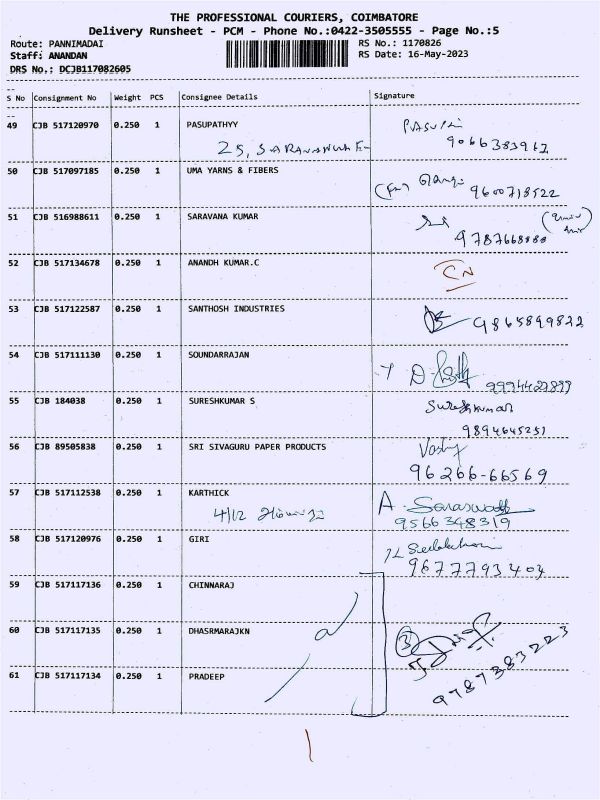 THE PROFESSIONAL COURIERS, COIMBATORE
Delivery Runsheet - PCM - Phone No.:0422-3505555 - Page No.:5
Route: PANNIMADAI RS No.: 1170826
Staff: ANANDAN RS Date: 16-May-2023
DRS No.: DCJB117082605
S No Consignment No Weight PCS Consignee Details Signature
49 CJB 517120970 0.250 1 PASUPATHYY
9066383967
50 CJB 517097185 0.250 1 UMA YARNS & FIBERS
9600718522
51 CJB 516988611 0.250 1 SARAVANA KUMAR
52 CJB 517134678 0.250 1 ANANDH KUMAR.C CN
53 CJB 517122587 0.250 1 SANTHOSH INDUSTRIES
9865899822
54 CJB 517111130 0.250 1 SOUNDARRAJAN
55 CJB 184038 0.250 1 SURESHKUMAR S Sureshkumar
9894645251
56 CJB 89505838 0.250 1 SRI SIVAGURU PAPER PRODUCTS
96266-66569
57 CJB 517112538 0.250 1 KARTHICK A. Saraswathi
4/12 9566348319
58 CJB 517120976 0.250 1 GIRI
9677793404
59 CJB 517117136 0.250 1 CHINNARAJ
60 CJB 517117135 0.250 1 DHASRMARAJKN 3
61 CJB 517117134 0.250 1 PRADEEP 9787383223